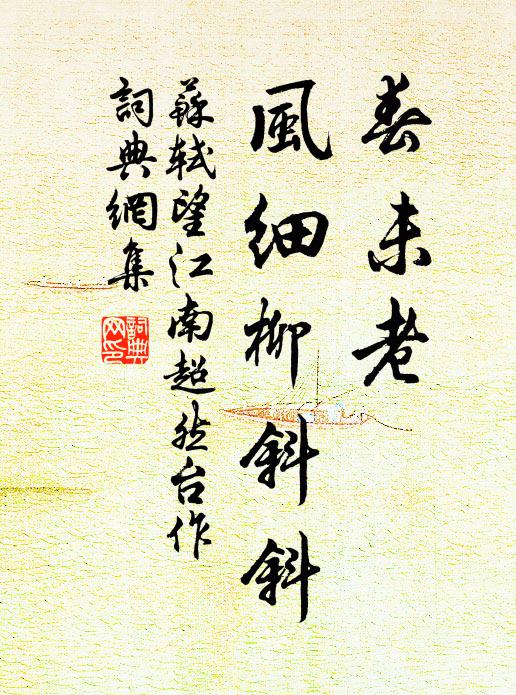 春未老
風細柳斜斜
蘇軾望江南超然台作
詞典網集
詞典網印